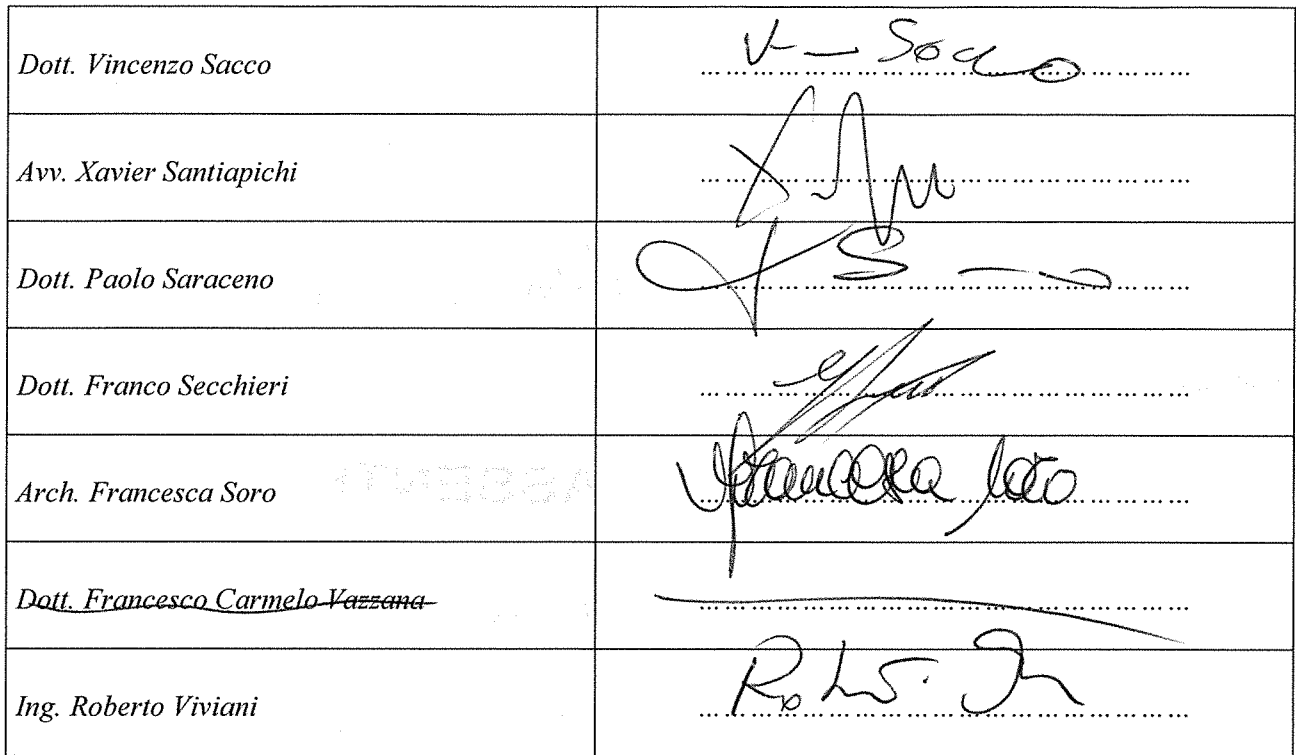 Dott. Vincenzo Sacco V Sacco
Avv. Xavier Santiapichi
Dott. Paolo Saraceno
Dott. Franco Secchieri
Arch. Francesca Soro Francesca Soro
Dott. Francesco Carmelo Vazzana
Ing. Roberto Viviani